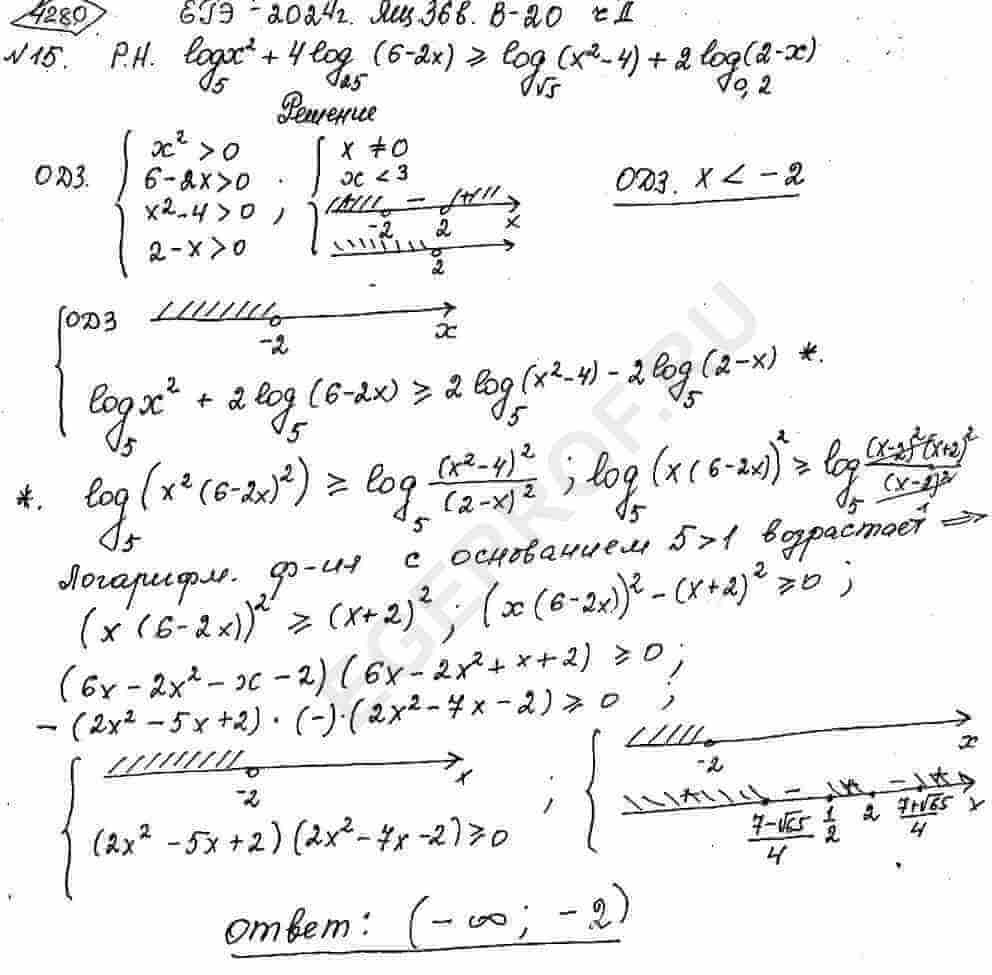 4280 ЕГЭ-2024г. Ящ. 36в. В-20 ч II
№15. Р.Н. log₅x² + 4log₂₅(6-2x) ≥ log_√5(x²-4) + 2log₀,₂(2-x)
Решение
ОДЗ. { x² > 0 ; 6-2x>0 ; x²-4>0 ; 2-x>0 ; { x ≠ 0 ; x < 3 ; + -2 - 2 + x ; 2
ОДЗ. x < -2
{ ОДЗ -2 x
log₅x² + 2log₅(6-2x) ≥ 2log₅(x²-4) - 2log₅(2-x) *.
*. log₅(x²(6-2x)²) ≥ log₅ (x²-4)²/(2-x)² ; log₅(x(6-2x))² ≥ log₅ (x-2)²(x+2)²/(x-2)²
Логарифм. ф-ия с основанием 5>1 возрастает ⇒
(x(6-2x))² ≥ (x+2)² ; (x(6-2x))² - (x+2)² ≥ 0 ;
(6x-2x²-x-2)(6x-2x²+x+2) ≥ 0 ;
-(2x²-5x+2)·(-)·(2x²-7x-2) ≥ 0 ;
{ -2 x ; { -2 x
(2x²-5x+2)(2x²-7x-2) ≥ 0
+ (7-√65)/4 - 1/2 + 2 - (7+√65)/4 + x
Ответ: (-∞; -2)
EGEPROF.RU